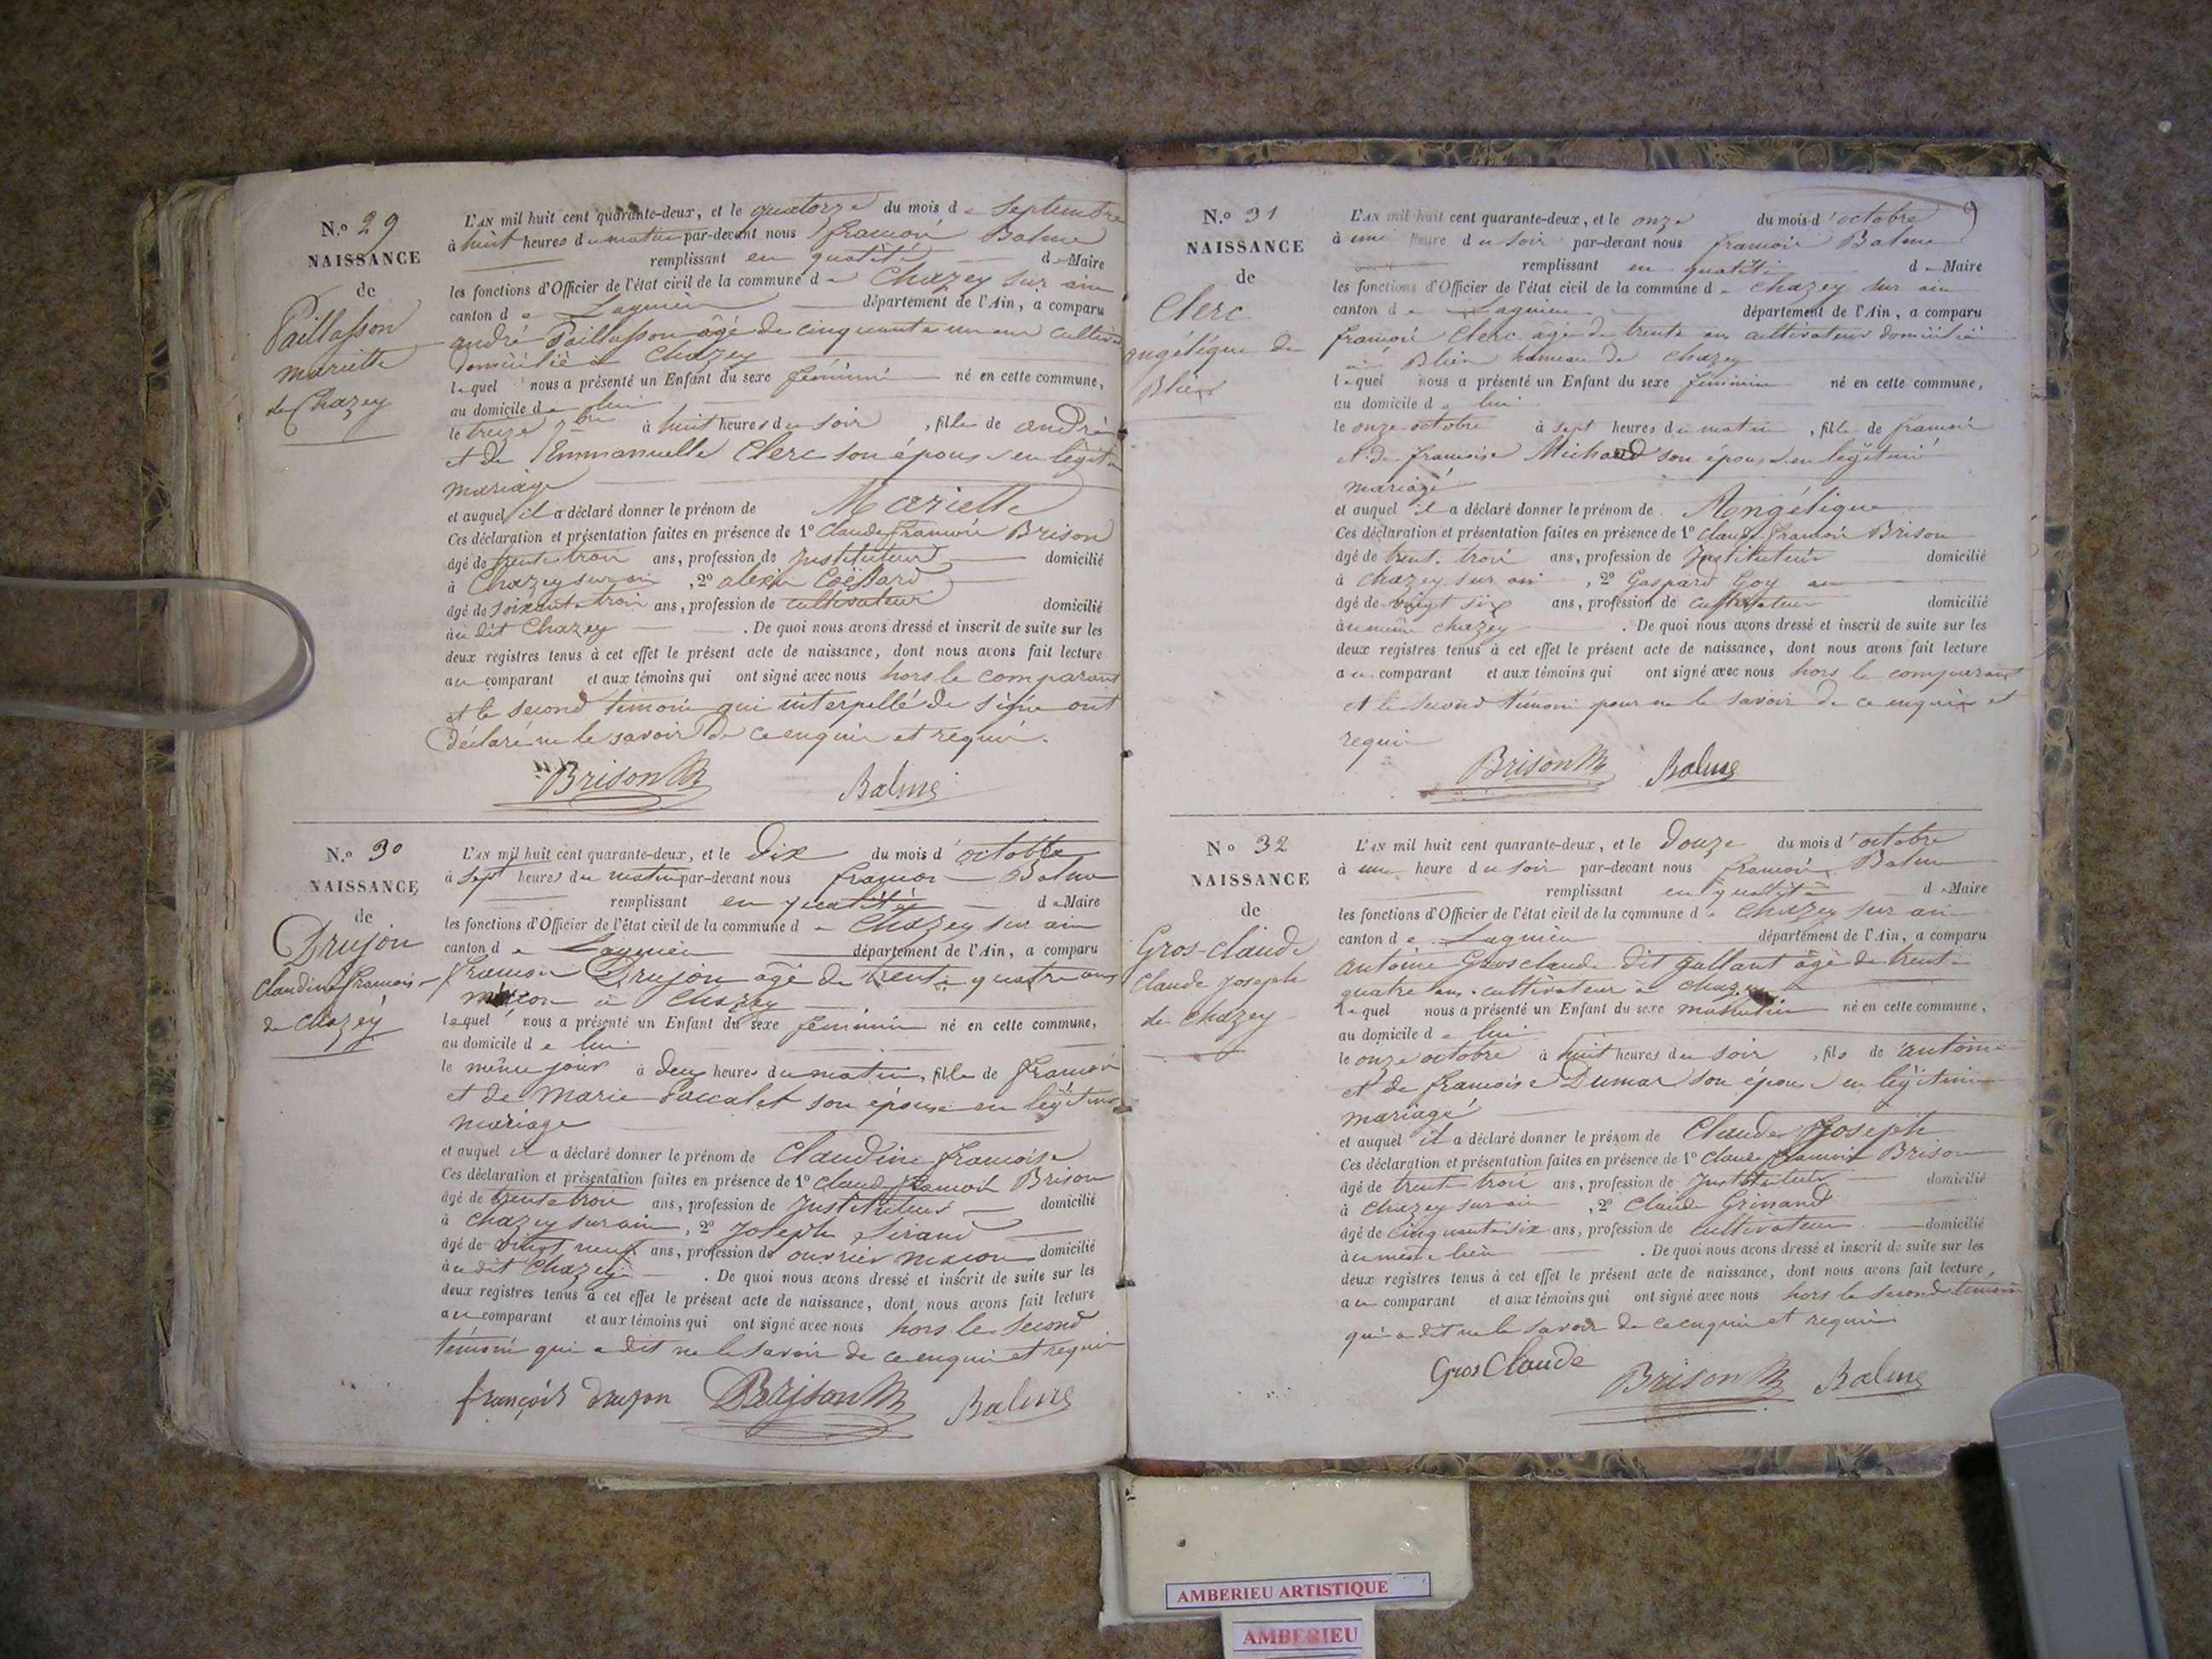 N.o 29
NAISSANCE
de
Paillasson
mariette
de Chazey
L'AN mil huit cent quarante-deux, et le quatorze du mois de Septembre
à huit heures du matin par-devant nous françois Balme
remplissant en qualité de Maire
les fonctions d'Officier de l'état civil de la commune de Chazey sur ain
canton de Lagnieu département de l'Ain, a comparu
andré Paillasson âgé de cinquante un ans
domicilié à Chazey
lequel nous a présenté un Enfant du sexe féminin né en cette commune,
au domicile de lui
le treize 7bre à huit heures du soir, fille de andré
et de Emmanuelle Clerc son épouse en légitime
mariage
et auquel il a déclaré donner le prénom de Mariette
Ces déclaration et présentation faites en présence de 1o Claude françois Brison
âgé de trente trois ans, profession de Instituteur domicilié
à Chazey sur ain, 2o alexis
âgé de soixante trois ans, profession de cultivateur domicilié
au dit Chazey. De quoi nous avons dressé et inscrit de suite sur les
deux registres tenus à cet effet le présent acte de naissance, dont nous avons fait lecture
au comparant et aux témoins qui ont signé avec nous hors le comparant
et le second témoin qui interpellé de signe ont
déclaré ne le savoir de ce enquis et requis.
Brison Balme
N.o 30
NAISSANCE
de
Drujon
Claudine françoise
de Chazey
L'AN mil huit cent quarante-deux, et le Dix du mois d'octobre
à sept heures du matin par-devant nous françois Balme
remplissant en qualité de Maire
les fonctions d'Officier de l'état civil de la commune de Chazey sur ain
canton de Lagnieu département de l'Ain, a comparu
françois Drujon âgé de trente quatre ans
maçon à Chazey
lequel nous a présenté un Enfant du sexe féminin né en cette commune,
au domicile de lui
le même jour à deux heures du matin, fille de françois
et de Marie Paccalet son épouse en légitime
mariage
et auquel il a déclaré donner le prénom de Claudine françoise
Ces déclaration et présentation faites en présence de 1o Claude françois Brison
âgé de trente trois ans, profession de Instituteur domicilié
à Chazey sur ain, 2o Joseph Sirand
âgé de vingt neuf ans, profession de ouvrier maçon domicilié
au dit Chazey. De quoi nous avons dressé et inscrit de suite sur les
deux registres tenus à cet effet le présent acte de naissance, dont nous avons fait lecture
au comparant et aux témoins qui ont signé avec nous hors le second
témoin qui a dit ne le savoir de ce enquis et requis
françois drujon Brison Balme
9
N.o 31
NAISSANCE
de
Clerc
angélique de
Blien
L'AN mil huit cent quarante-deux, et le onze du mois d'octobre
à une heure du soir par-devant nous françois Balme
remplissant en qualité de Maire
les fonctions d'Officier de l'état civil de la commune de Chazey sur ain
canton de Lagnieu département de l'Ain, a comparu
françois Clerc âgé de trente ans cultivateur domicilié
à Blien hameau de Chazey
lequel nous a présenté un Enfant du sexe féminin né en cette commune,
au domicile de lui
le onze octobre à sept heures du matin, fille de françois
et de françoise Michaud son épouse en légitime
mariage
et auquel il a déclaré donner le prénom de Angélique
Ces déclaration et présentation faites en présence de 1o Claude françois Brison
âgé de trente trois ans, profession de Instituteur domicilié
à Chazey sur ain, 2o Gaspard Goy
âgé de vingt six ans, profession de cultivateur domicilié
au même Chazey. De quoi nous avons dressé et inscrit de suite sur les
deux registres tenus à cet effet le présent acte de naissance, dont nous avons fait lecture
au comparant et aux témoins qui ont signé avec nous hors le comparant
et le second témoin pour ne le savoir de ce enquis et
requis
Brison Balme
No 32
NAISSANCE
de
Gros-claude
Claude Joseph
de Chazey
L'AN mil huit cent quarante-deux, et le Douze du mois d'octobre
à une heure du soir par-devant nous françois Balme
remplissant en qualité de Maire
les fonctions d'Officier de l'état civil de la commune de Chazey sur ain
canton de Lagnieu département de l'Ain, a comparu
antoine Grosclaude dit gallant âgé de trente
quatre ans cultivateur à Chazey
lequel nous a présenté un Enfant du sexe masculin né en cette commune,
au domicile de lui
le onze octobre à huit heures du soir, fils de antoine
et de françoise Dumas son épouse en légitime
mariage
et auquel il a déclaré donner le prénom de Claude Joseph
Ces déclaration et présentation faites en présence de 1o Claude françois Brison
âgé de trente trois ans, profession de Instituteur domicilié
à Chazey sur ain, 2o Claude Grinand
âgé de cinquante six ans, profession de cultivateur domicilié
au même lieu. De quoi nous avons dressé et inscrit de suite sur les
deux registres tenus à cet effet le présent acte de naissance, dont nous avons fait lecture
au comparant et aux témoins qui ont signé avec nous hors le second témoin
qui a dit ne le savoir de ce enquis et requis
Gros Claude Brison Balme
AMBERIEU ARTISTIQUE
AMBERIEU